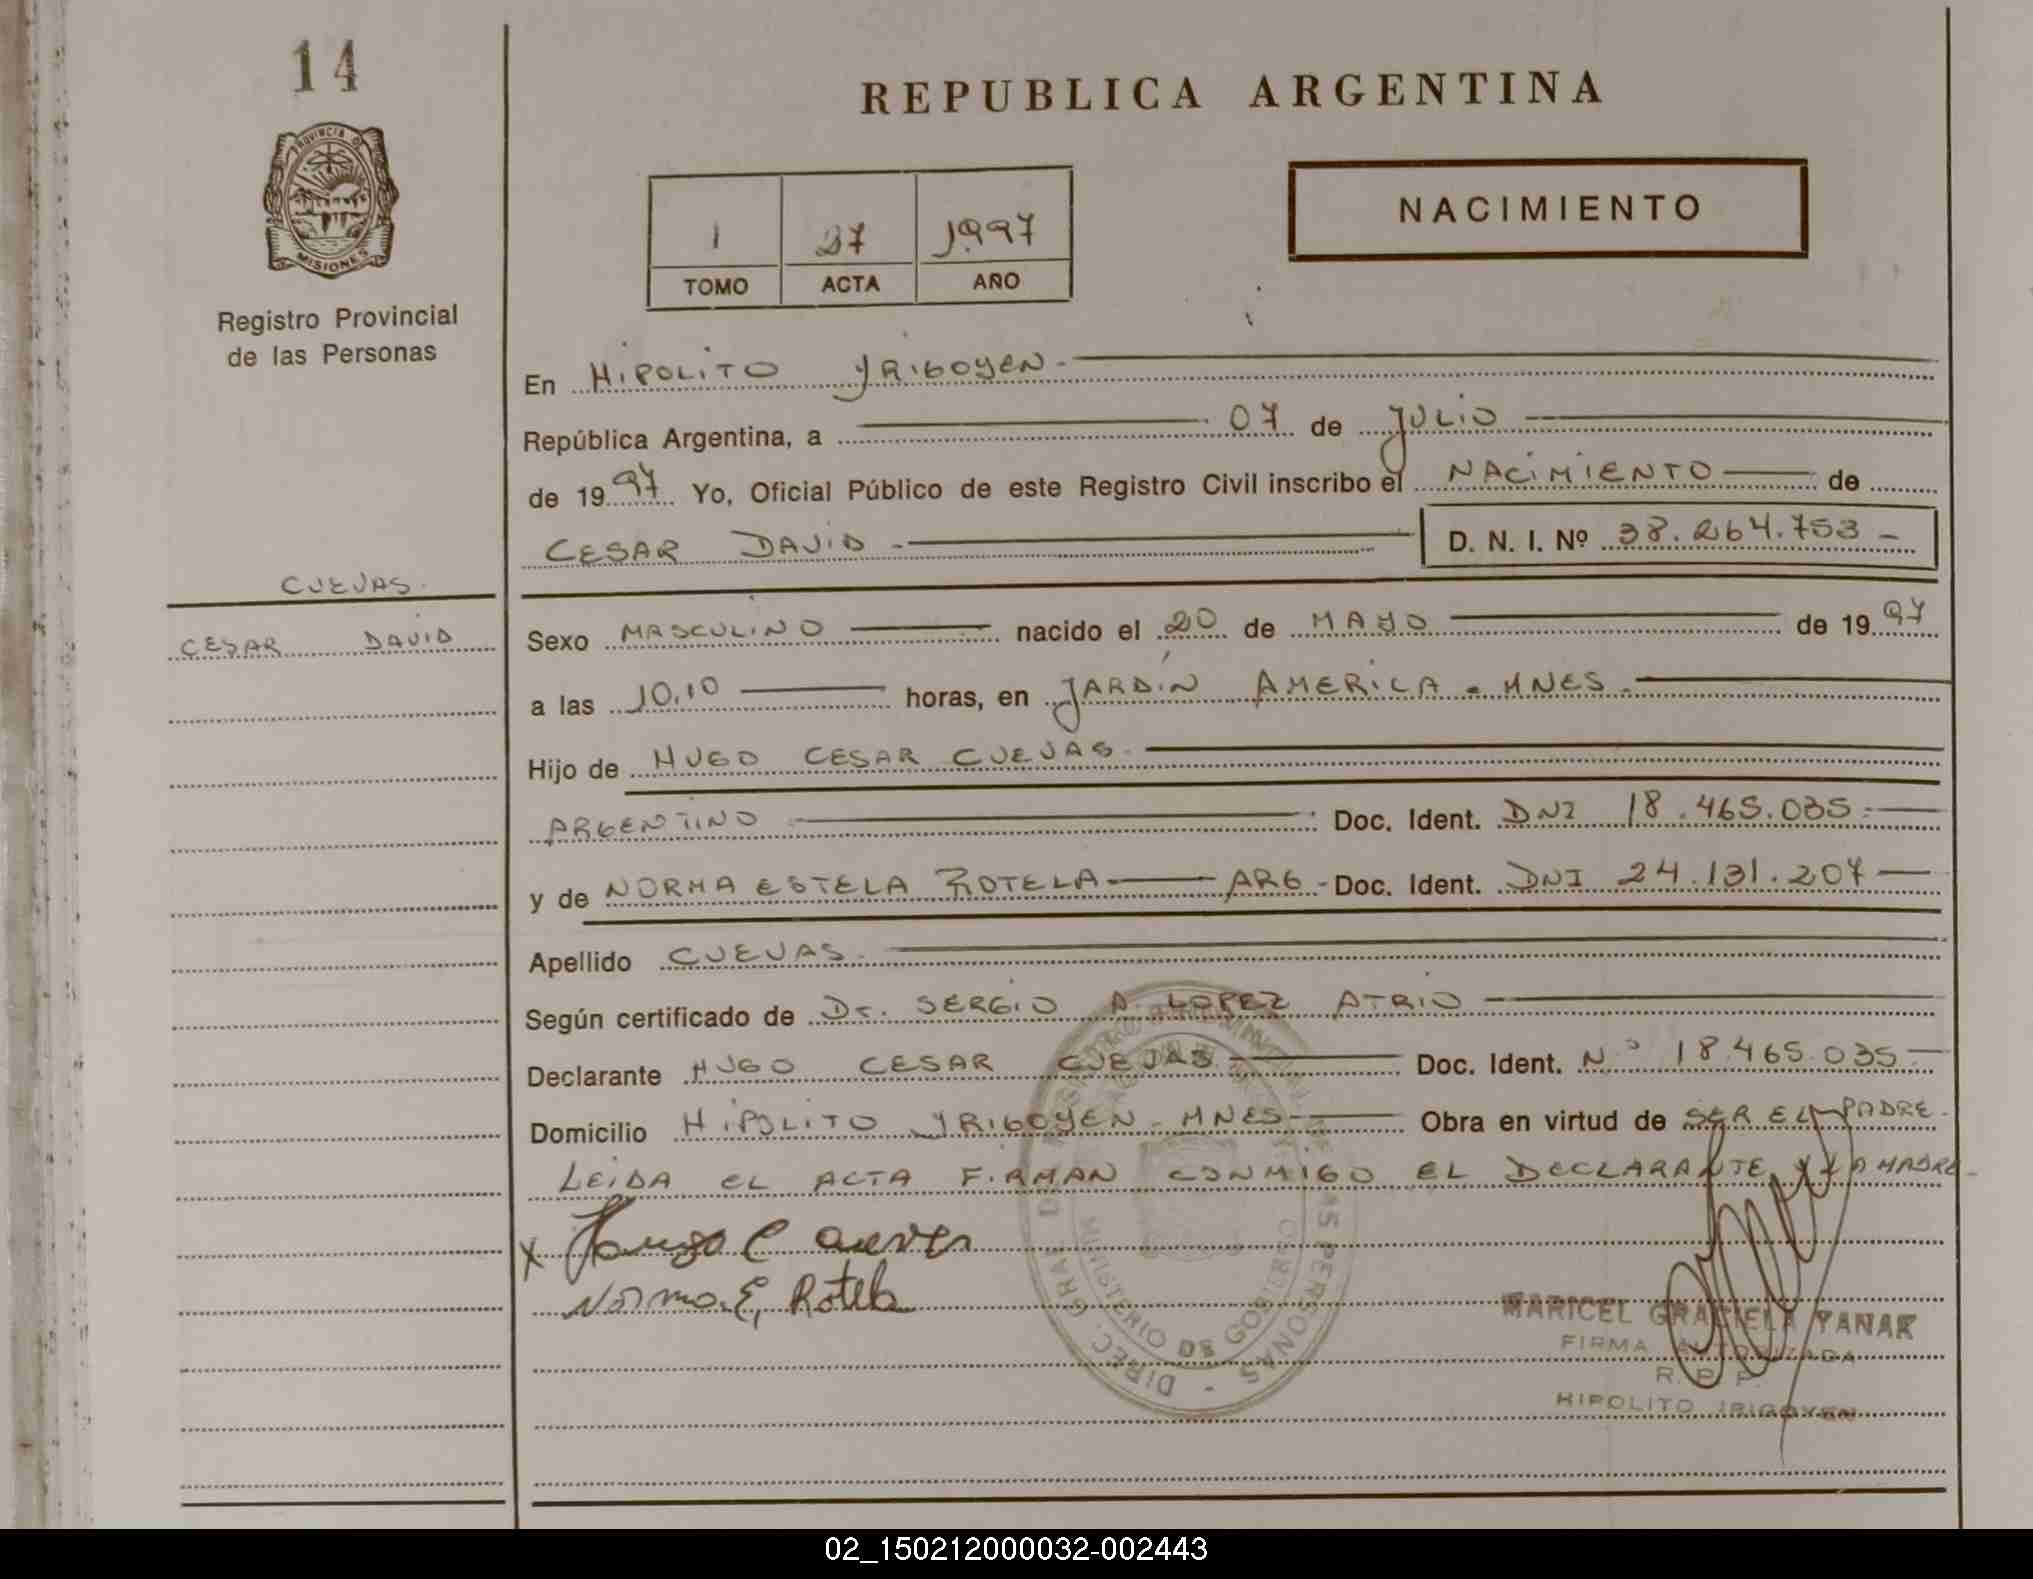 14
PROVINCIA DE
MISIONES
Registro Provincial
de las Personas
CUEVAS.
CESAR DAVID
REPUBLICA ARGENTINA
NACIMIENTO
1 27 1997
TOMO ACTA AÑO
En HIPOLITO YRIGOYEN.
República Argentina, a 07 de JULIO
de 1997 Yo, Oficial Público de este Registro Civil inscribo el NACIMIENTO de
CESAR DAVID - D. N. I. Nº 38.264.753 -
Sexo MASCULINO nacido el 20 de MAYO de 1997
a las 10,10 horas, en JARDIN AMERICA - MNES.
Hijo de HUGO CESAR CUEVAS.
ARGENTINO Doc. Ident. DNI 18.465.035.
y de NORMA ESTELA ROTELA ARG - Doc. Ident. DNI 24.131.207
Apellido CUEVAS.
Según certificado de Dr. SERGIO A. LOPEZ ATRIO
Declarante HUGO CESAR CUEVAS Doc. Ident. N.º 18.465.035
Domicilio HIPOLITO YRIGOYEN - MNES Obra en virtud de SER EL PADRE.
LEIDA EL ACTA FIRMAN CONMIGO EL DECLARANTE Y LA MADRE.
x Hugo C Cuevas
Norma E, Rotela
MARICEL GRACIELA YANAK
FIRMA AUTORIZADA
R. P. P.
HIPOLITO IRIGOYEN
DIREC. GRAL. PERSONAS -
MINISTERIO DE GOBIERNO
02_150212000032-002443